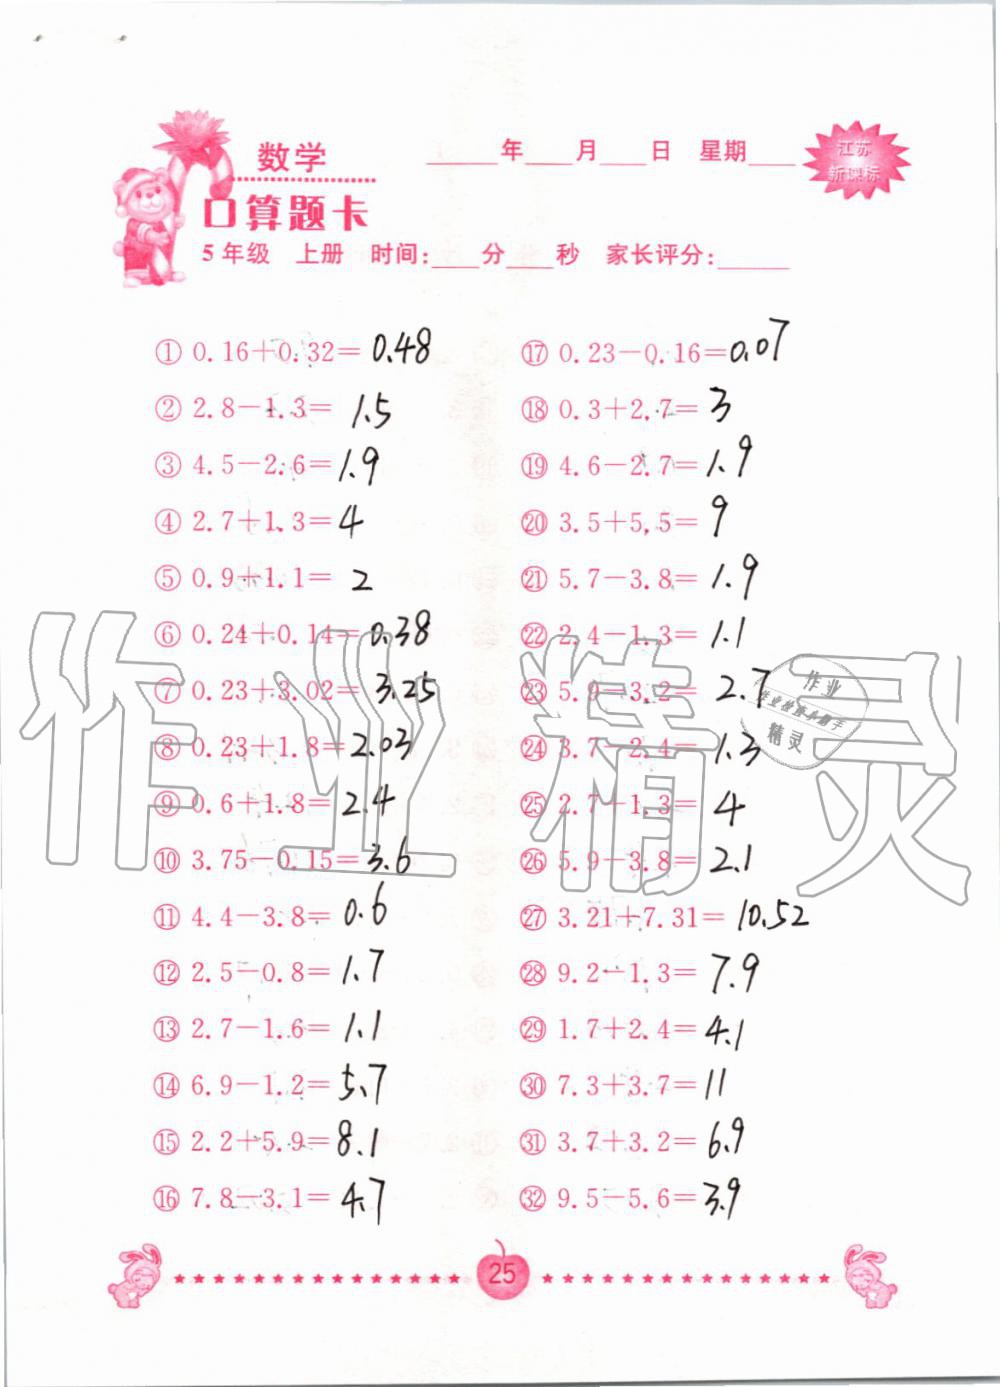 数学
____年____月____日 星期____
江苏
新课标
口算题卡
5年级 上册 时间:____分____秒 家长评分:____
① 0.16+0.32= 0.48
② 2.8-1.3= 1.5
③ 4.5-2.6= 1.9
④ 2.7+1.3= 4
⑤ 0.9+1.1= 2
⑥ 0.24+0.14= 0.38
⑦ 0.23+3.02= 3.25
⑧ 0.23+1.8= 2.03
⑨ 0.6+1.8= 2.4
⑩ 3.75-0.15= 3.6
⑪ 4.4-3.8= 0.6
⑫ 2.5-0.8= 1.7
⑬ 2.7-1.6= 1.1
⑭ 6.9-1.2= 5.7
⑮ 2.2+5.9= 8.1
⑯ 7.8-3.1= 4.7
⑰ 0.23-0.16= 0.07
⑱ 0.3+2.7= 3
⑲ 4.6-2.7= 1.9
⑳ 3.5+5.5= 9
㉑ 5.7-3.8= 1.9
㉒ 2.4-1.3= 1.1
㉓ 5.9-3.2= 2.7
㉔ 3.7-2.4= 1.3
㉕ 2.7+1.3= 4
㉖ 5.9-3.8= 2.1
㉗ 3.21+7.31= 10.52
㉘ 9.2-1.3= 7.9
㉙ 1.7+2.4= 4.1
㉚ 7.3+3.7= 11
㉛ 3.7+3.2= 6.9
㉜ 9.5-5.6= 3.9
作业精灵
作业
精灵
25